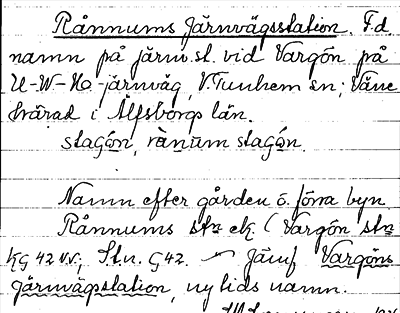 Rånnums Järnvägsstation. F.d
namn på järnv.st. vid Vargön på
U-W-H-järnväg, V. Tunhem sn; Väne
härad i Älfsborgs län.
stagón, rànum stagón.
Namn efter gården o. förra byn
Rånnums stn ek. (Vargön stn
KG 42 NV, St.n. G42. – Jämf Vargöns
järnvägsstation, nytids namn.